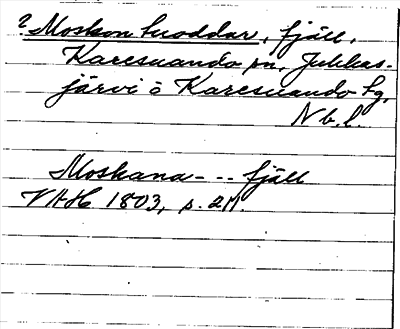 ? Moskon tuoddar, fjäll,
Karesuando sn, Jukkas-
järvi o Karesuando tg,
Nb.l.
Moskana - - - fjäll
VAH 1803, s. 211.